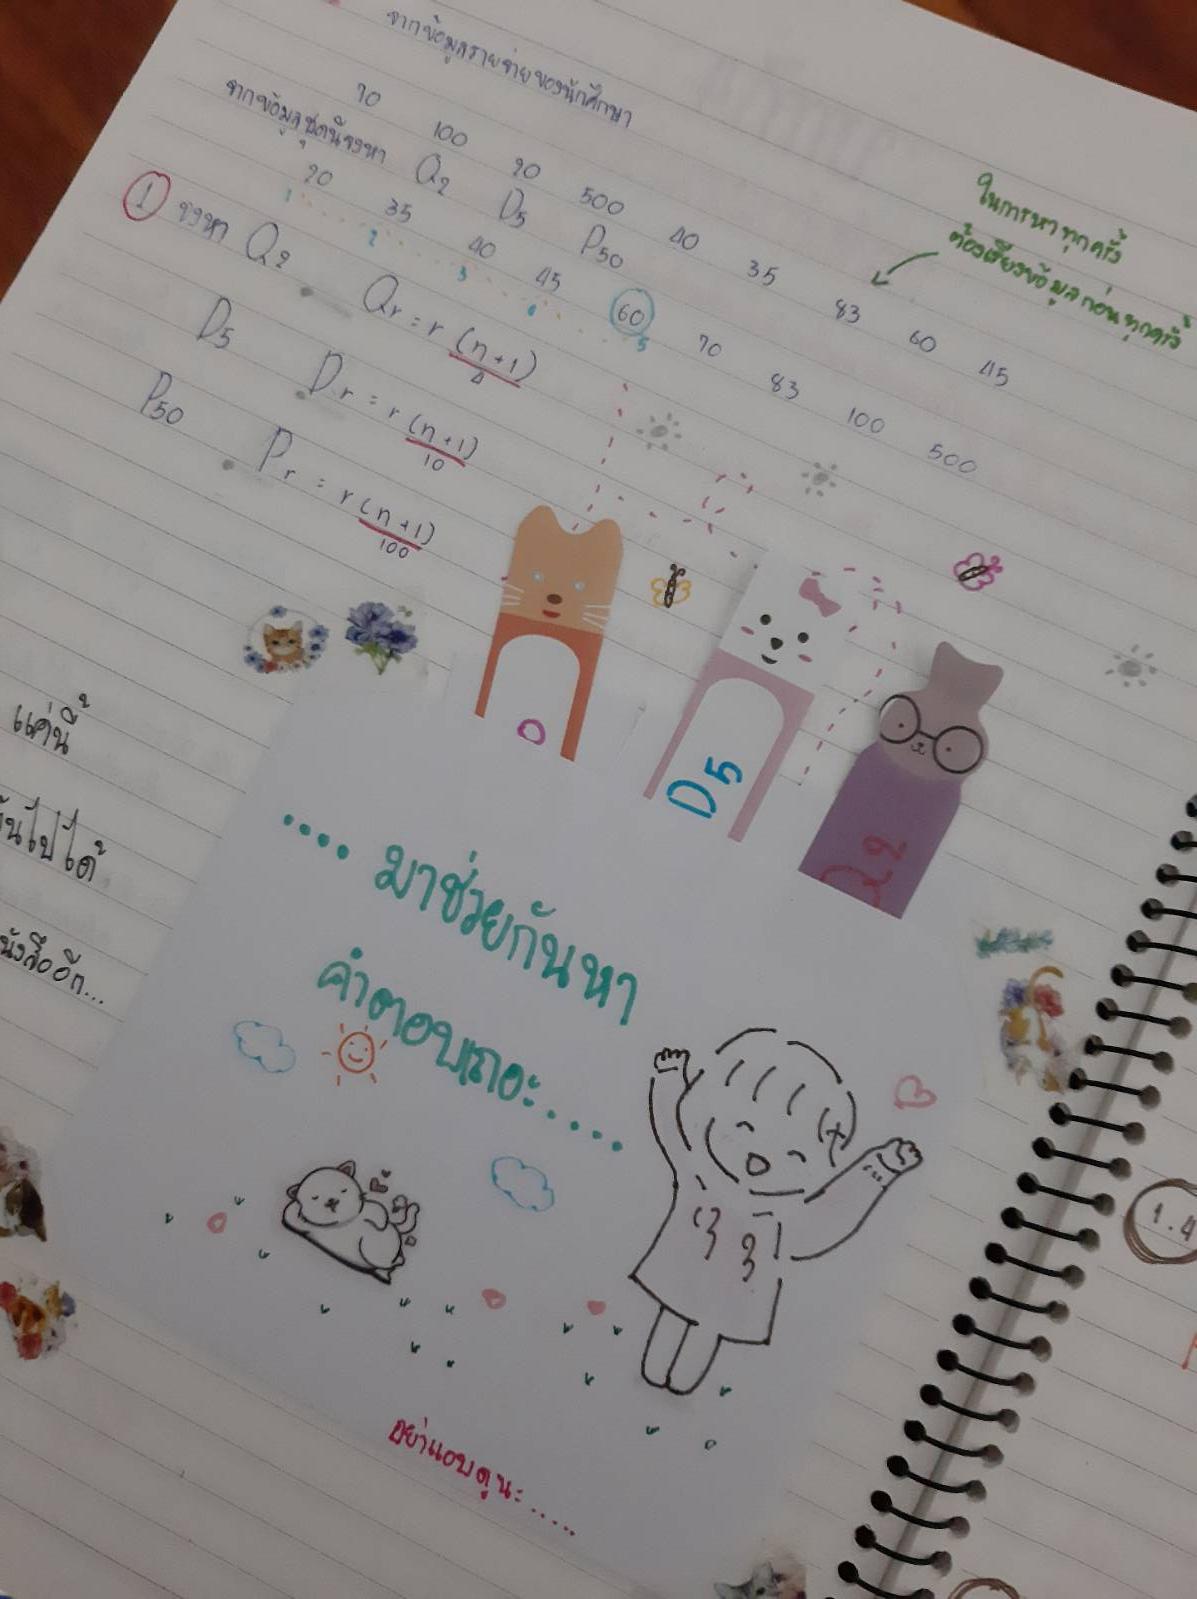 จากข้อมูลรายจ่ายของนักศึกษา
70 100 20 500 40 35 83 60 45
จากข้อมูลชุดนี้จงหา Q2 D5 P50
20 35 40 45 60 70 83 100 500
1 2 3 4 5
ในการหาทุกครั้ง
ต้องเรียงข้อมูลก่อนทุกครั้ง
1 จงหา Q2 Qr = r (n+1)/4
D5 Dr = r (n+1)/10
P50 Pr = r (n+1)/100
D5
แค่นี้
นไปได้
.... มาช่วยกันหา
คำตอบเถอะ....
อย่าแอบดูนะ.....
1.4